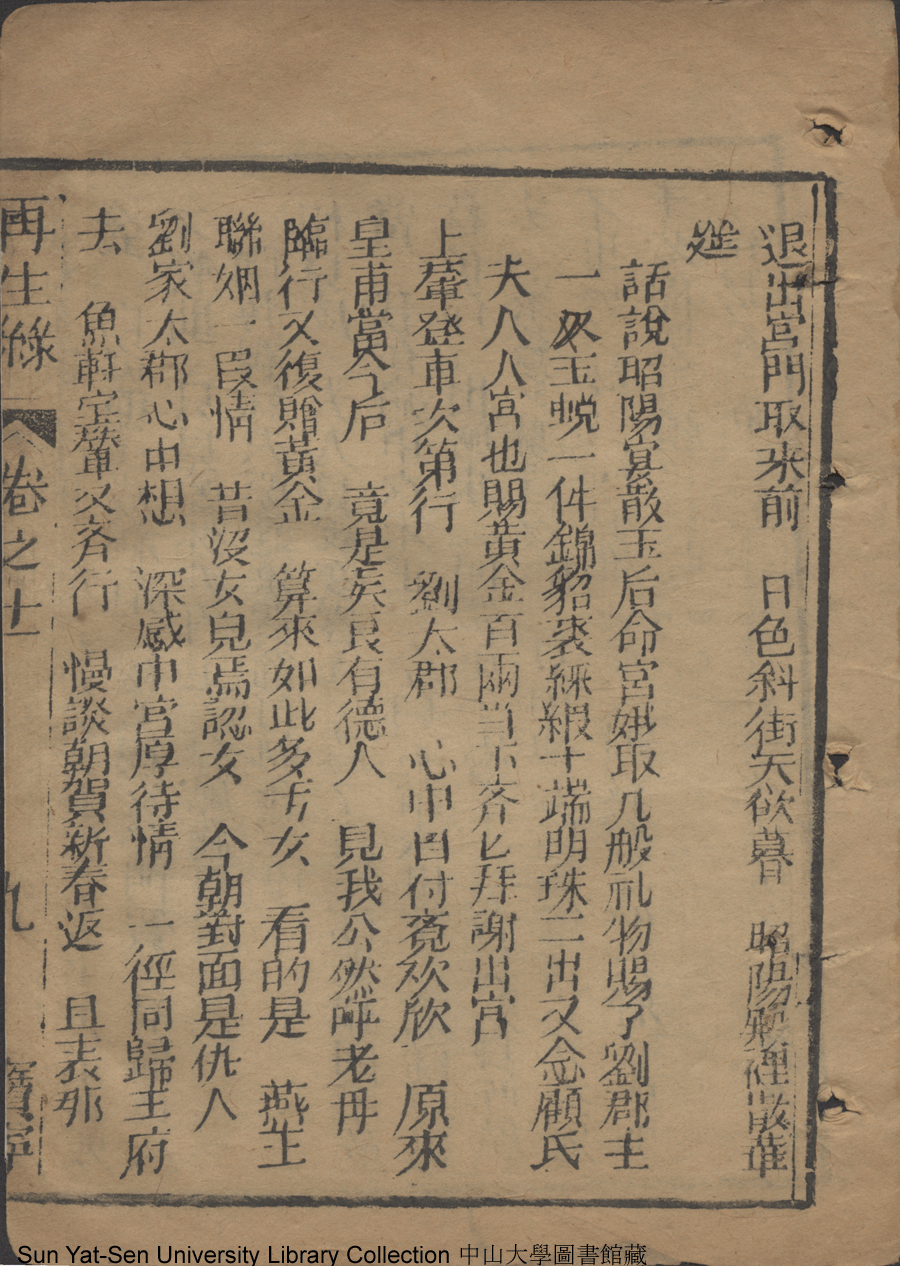 退出宮門取來前　日色斜街天欲暮　昭陽殿裡散華
筵
話說昭陽宴散玉后命宮娥取几般礼物賜了劉郡主
一双玉蜺一件錦貂裘綵緞十端明珠二出又念顧氏
夫人入宮也賜黃金百兩当下齐匕拜謝出宮
上輦登車次第行　劉太郡　心中自付竟欢欣　原來
皇甫當今后　竟是柔良有德人　見我公然呼老母
臨行又復贈黃金　算來如此多才女　看的是　燕玉
聯姻一段情　昔没女兒焉認女　今朝對面是仇人
劉家太郡心中想　深感中宮厚待情　一徑同歸王府
去　魚軒宝輦又齐行　慢談朝賀新春返　且表那
再生緣　卷之十一　九　寶寧
Sun Yat-Sen University Library Collection 中山大學圖書館藏